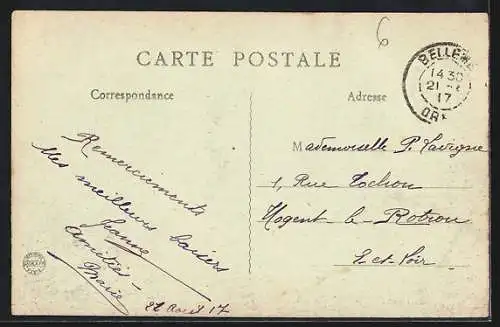 6
CARTE POSTALE
Correspondance
Adresse
BELLÊME
14 30
21
17
Remerciements
Mes meilleurs baisers
Jeanne
Amitiés
Marie
22 Août 17
Mademoiselle P. Lavigne
1, Rue Tochon
Nogent-le-Rotrou
E-et-Loir